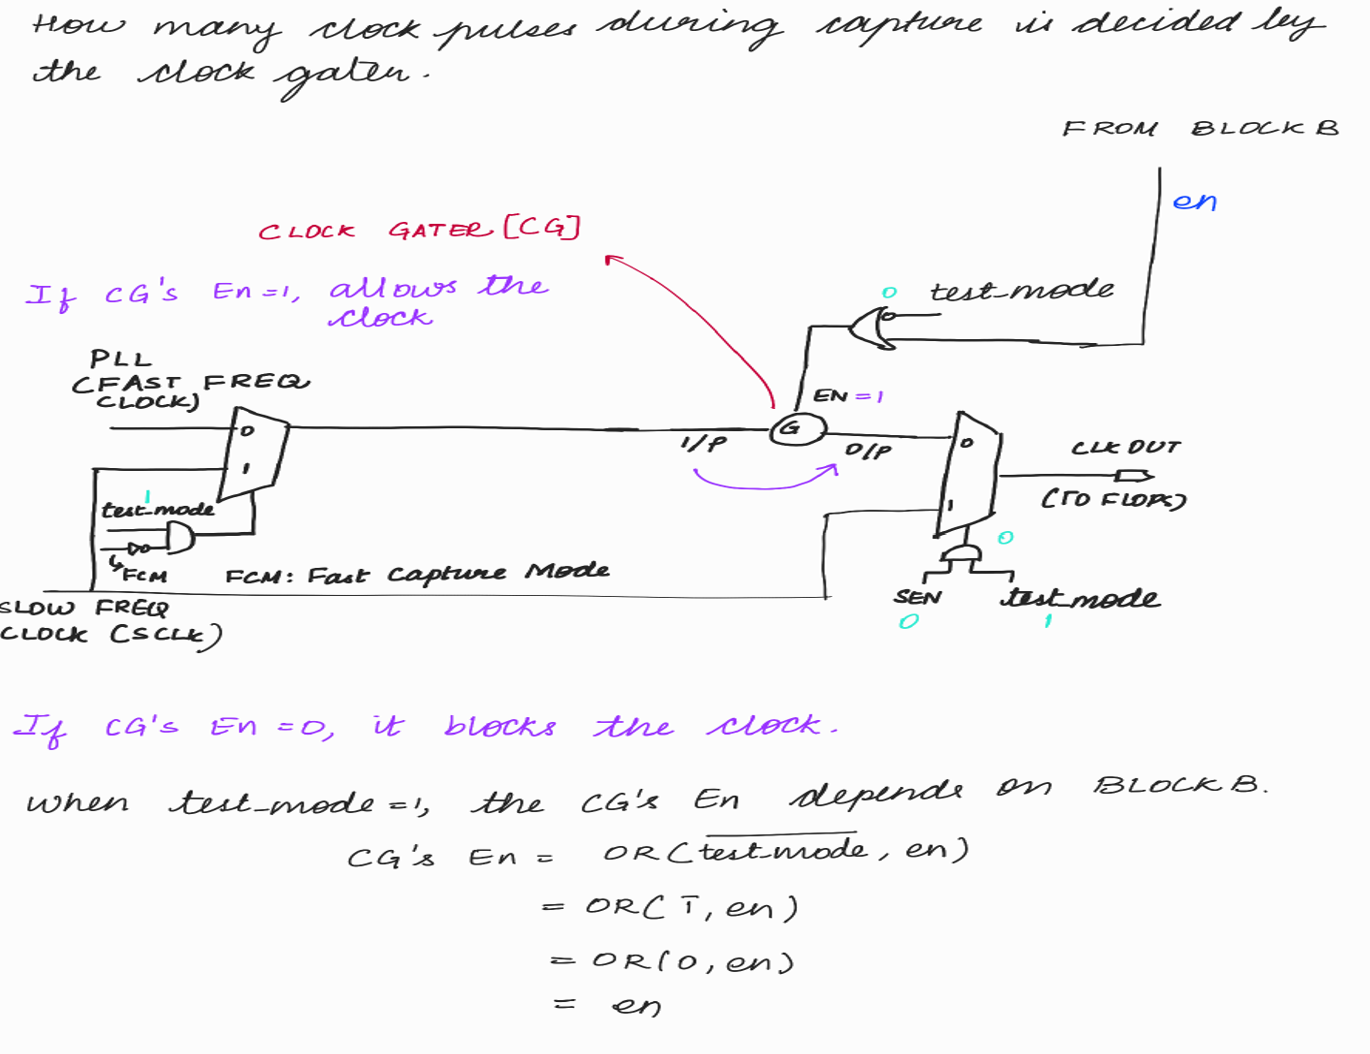 How many clock pulses during capture is decided by
the clock gater.
FROM BLOCK B
en
CLOCK GATER [CG]
If CG's En=1, allows the
clock
0 test_mode
PLL
(FAST FREQ
CLOCK)
EN =1
0
1
I/P
G
O/P
0
1
CLK OUT
(TO FLOPS)
1
test_mode
FCM
FCM: Fast Capture Mode
0
SEN
test_mode
0
1
SLOW FREQ
CLOCK (SCLK)
If CG's En =0, it blocks the clock.
When test_mode =1, the CG's En depends on BLOCK B.
CG's En = OR(t̅e̅s̅t̅_̅m̅o̅d̅e̅, en)
= OR(1̅, en)
= OR(0, en)
= en